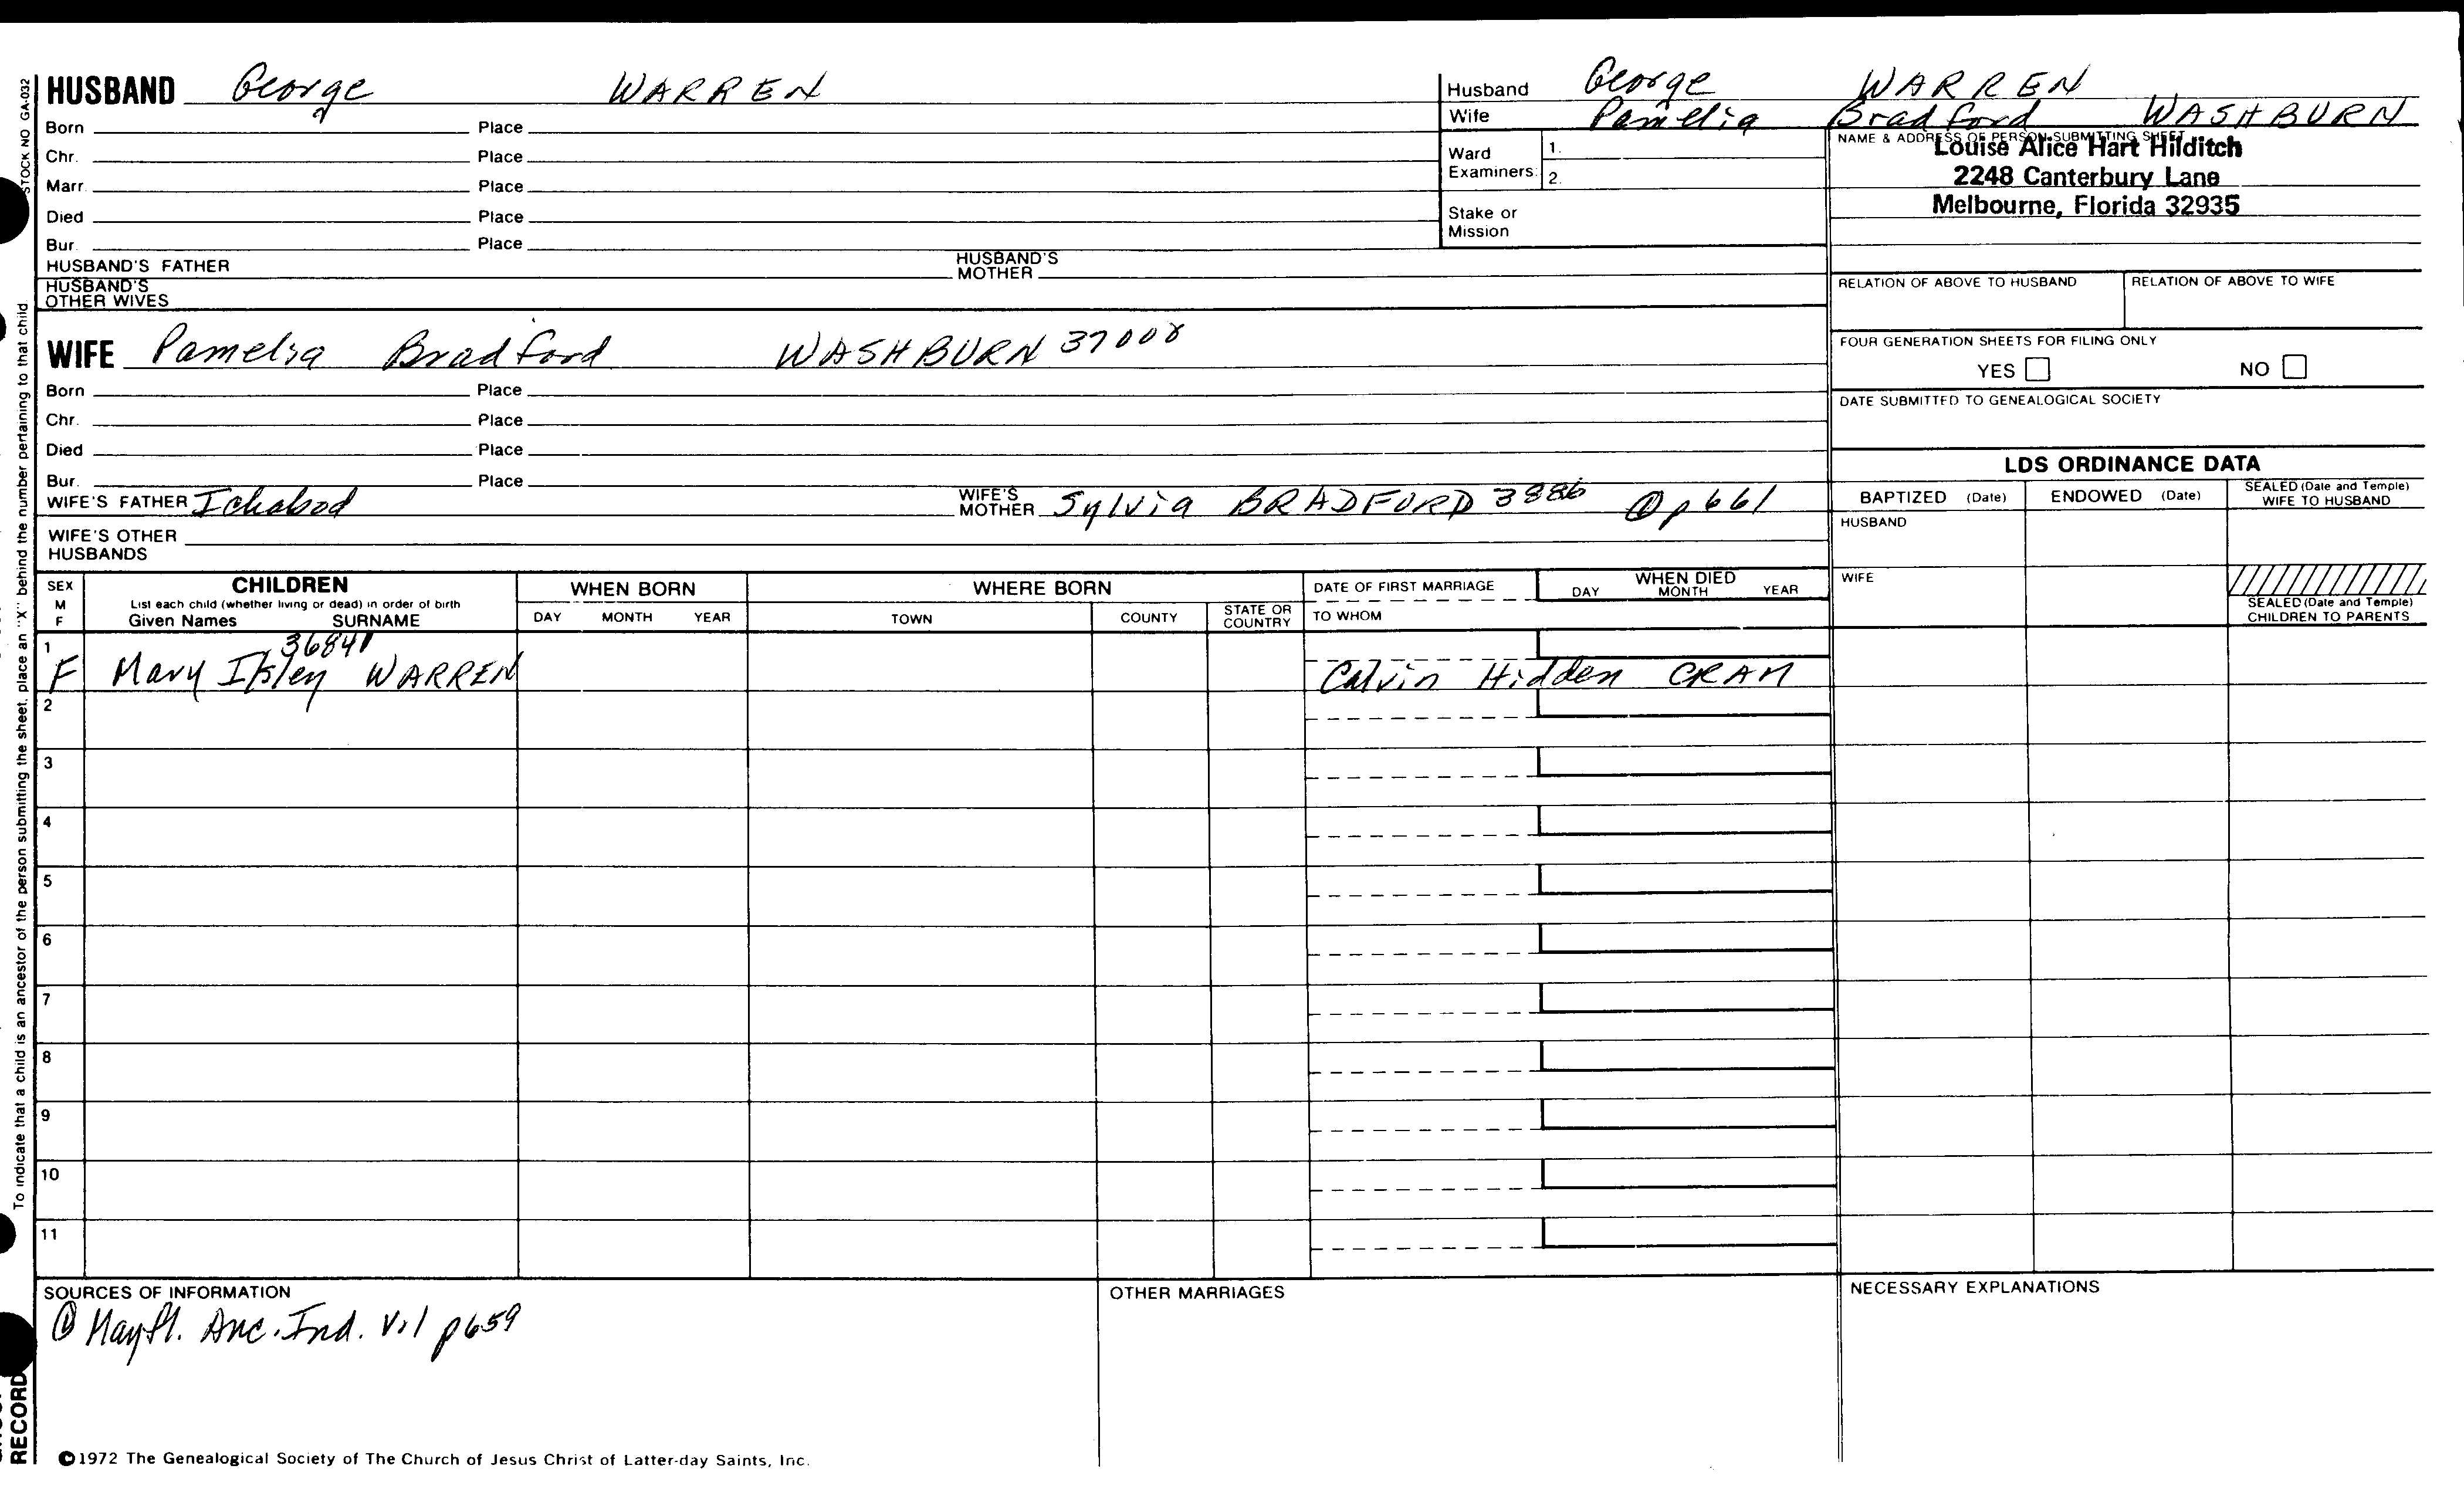 HUSBAND George WARREN
Born Place
Chr. Place
Marr. Place
Died Place
Bur. Place
HUSBAND'S FATHER HUSBAND'S MOTHER
HUSBAND'S OTHER WIVES
Husband George WARREN
Wife Pamelia Bradford WASHBURN
Ward Examiners: 1.
2.
Stake or Mission
NAME & ADDRESS OF PERSON SUBMITTING SHEET
Louise Alice Hart Hilditch
2248 Canterbury Lane
Melbourne, Florida 32935
RELATION OF ABOVE TO HUSBAND RELATION OF ABOVE TO WIFE
FOUR GENERATION SHEETS FOR FILING ONLY
YES NO
DATE SUBMITTED TO GENEALOGICAL SOCIETY
WIFE Pamelia Bradford WASHBURN 37008
Born Place
Chr. Place
Died Place
Bur. Place
WIFE'S FATHER Ichabod WIFE'S MOTHER Sylvia BRADFORD 3886 p661
WIFE'S OTHER HUSBANDS
LDS ORDINANCE DATA
BAPTIZED (Date) ENDOWED (Date) SEALED (Date and Temple) WIFE TO HUSBAND
HUSBAND
WIFE
SEALED (Date and Temple) CHILDREN TO PARENTS
SEX M F
CHILDREN
List each child (whether living or dead) in order of birth
Given Names SURNAME
WHEN BORN
DAY MONTH YEAR
WHERE BORN
TOWN COUNTY STATE OR COUNTRY
DATE OF FIRST MARRIAGE
TO WHOM
WHEN DIED
DAY MONTH YEAR
1
36841
F Mary WARREN Calvin Hidden CRAM
2
3
4
5
6
7
8
9
10
11
SOURCES OF INFORMATION
① Mayfl. Anc. Ind. V.1 p659
OTHER MARRIAGES
NECESSARY EXPLANATIONS
©1972 The Genealogical Society of The Church of Jesus Christ of Latter-day Saints, Inc.
STOCK NO GA-032
To indicate that a child is an ancestor of the person submitting the sheet, place an "X" behind the number pertaining to that child.
RECORD